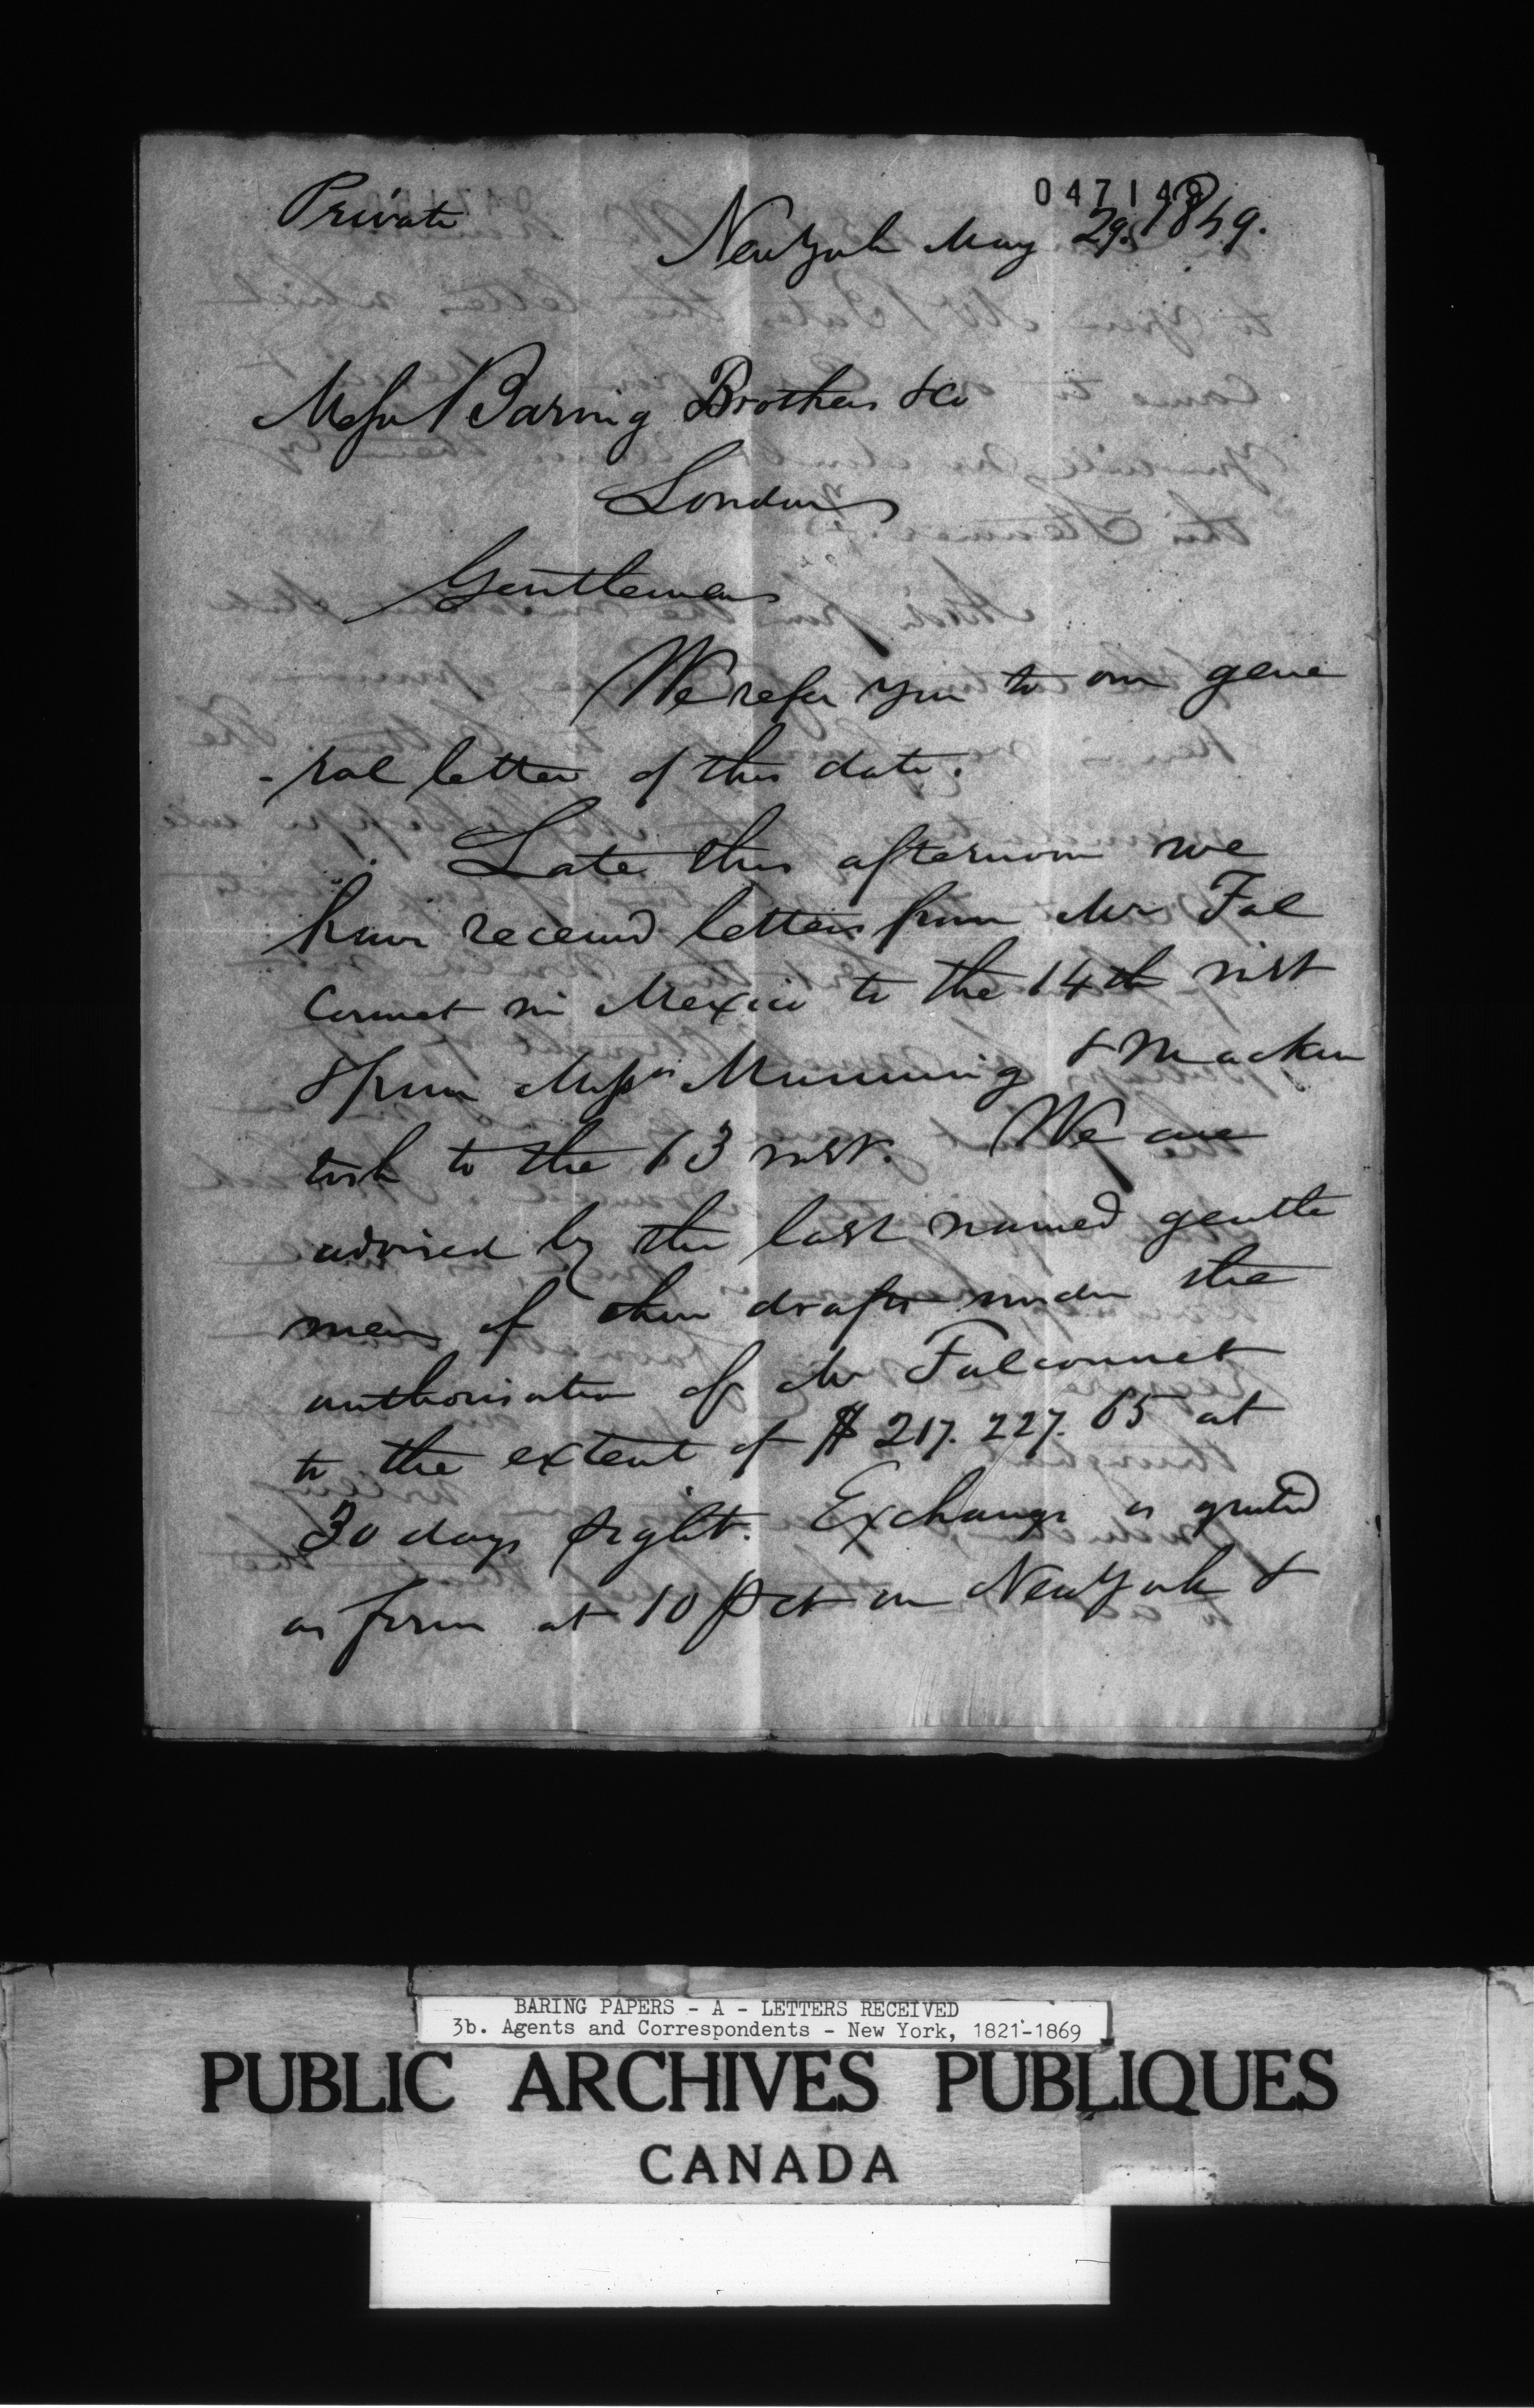 Private
047149
New York May 29. 1849.
Messrs Baring Brothers & Co
London
Gentlemen
We refer you to our gene
-ral letter of this date.
Late this afternoon we
have received letters from Mr Fal
connet in Mexico to the 14th inst
& from Messrs Manning & Mackin
tosh to the 13 inst. We are
advised by the last named gentle
men of their drafts under the
authorisation of Mr Falconnet
to the extent of $ 217.227.65 at
30 days sight. Exchange is quoted
as firm at 10 pct on New York &
BARING PAPERS - A - LETTERS RECEIVED
3b. Agents and Correspondents - New York, 1821-1869
PUBLIC ARCHIVES PUBLIQUES
CANADA